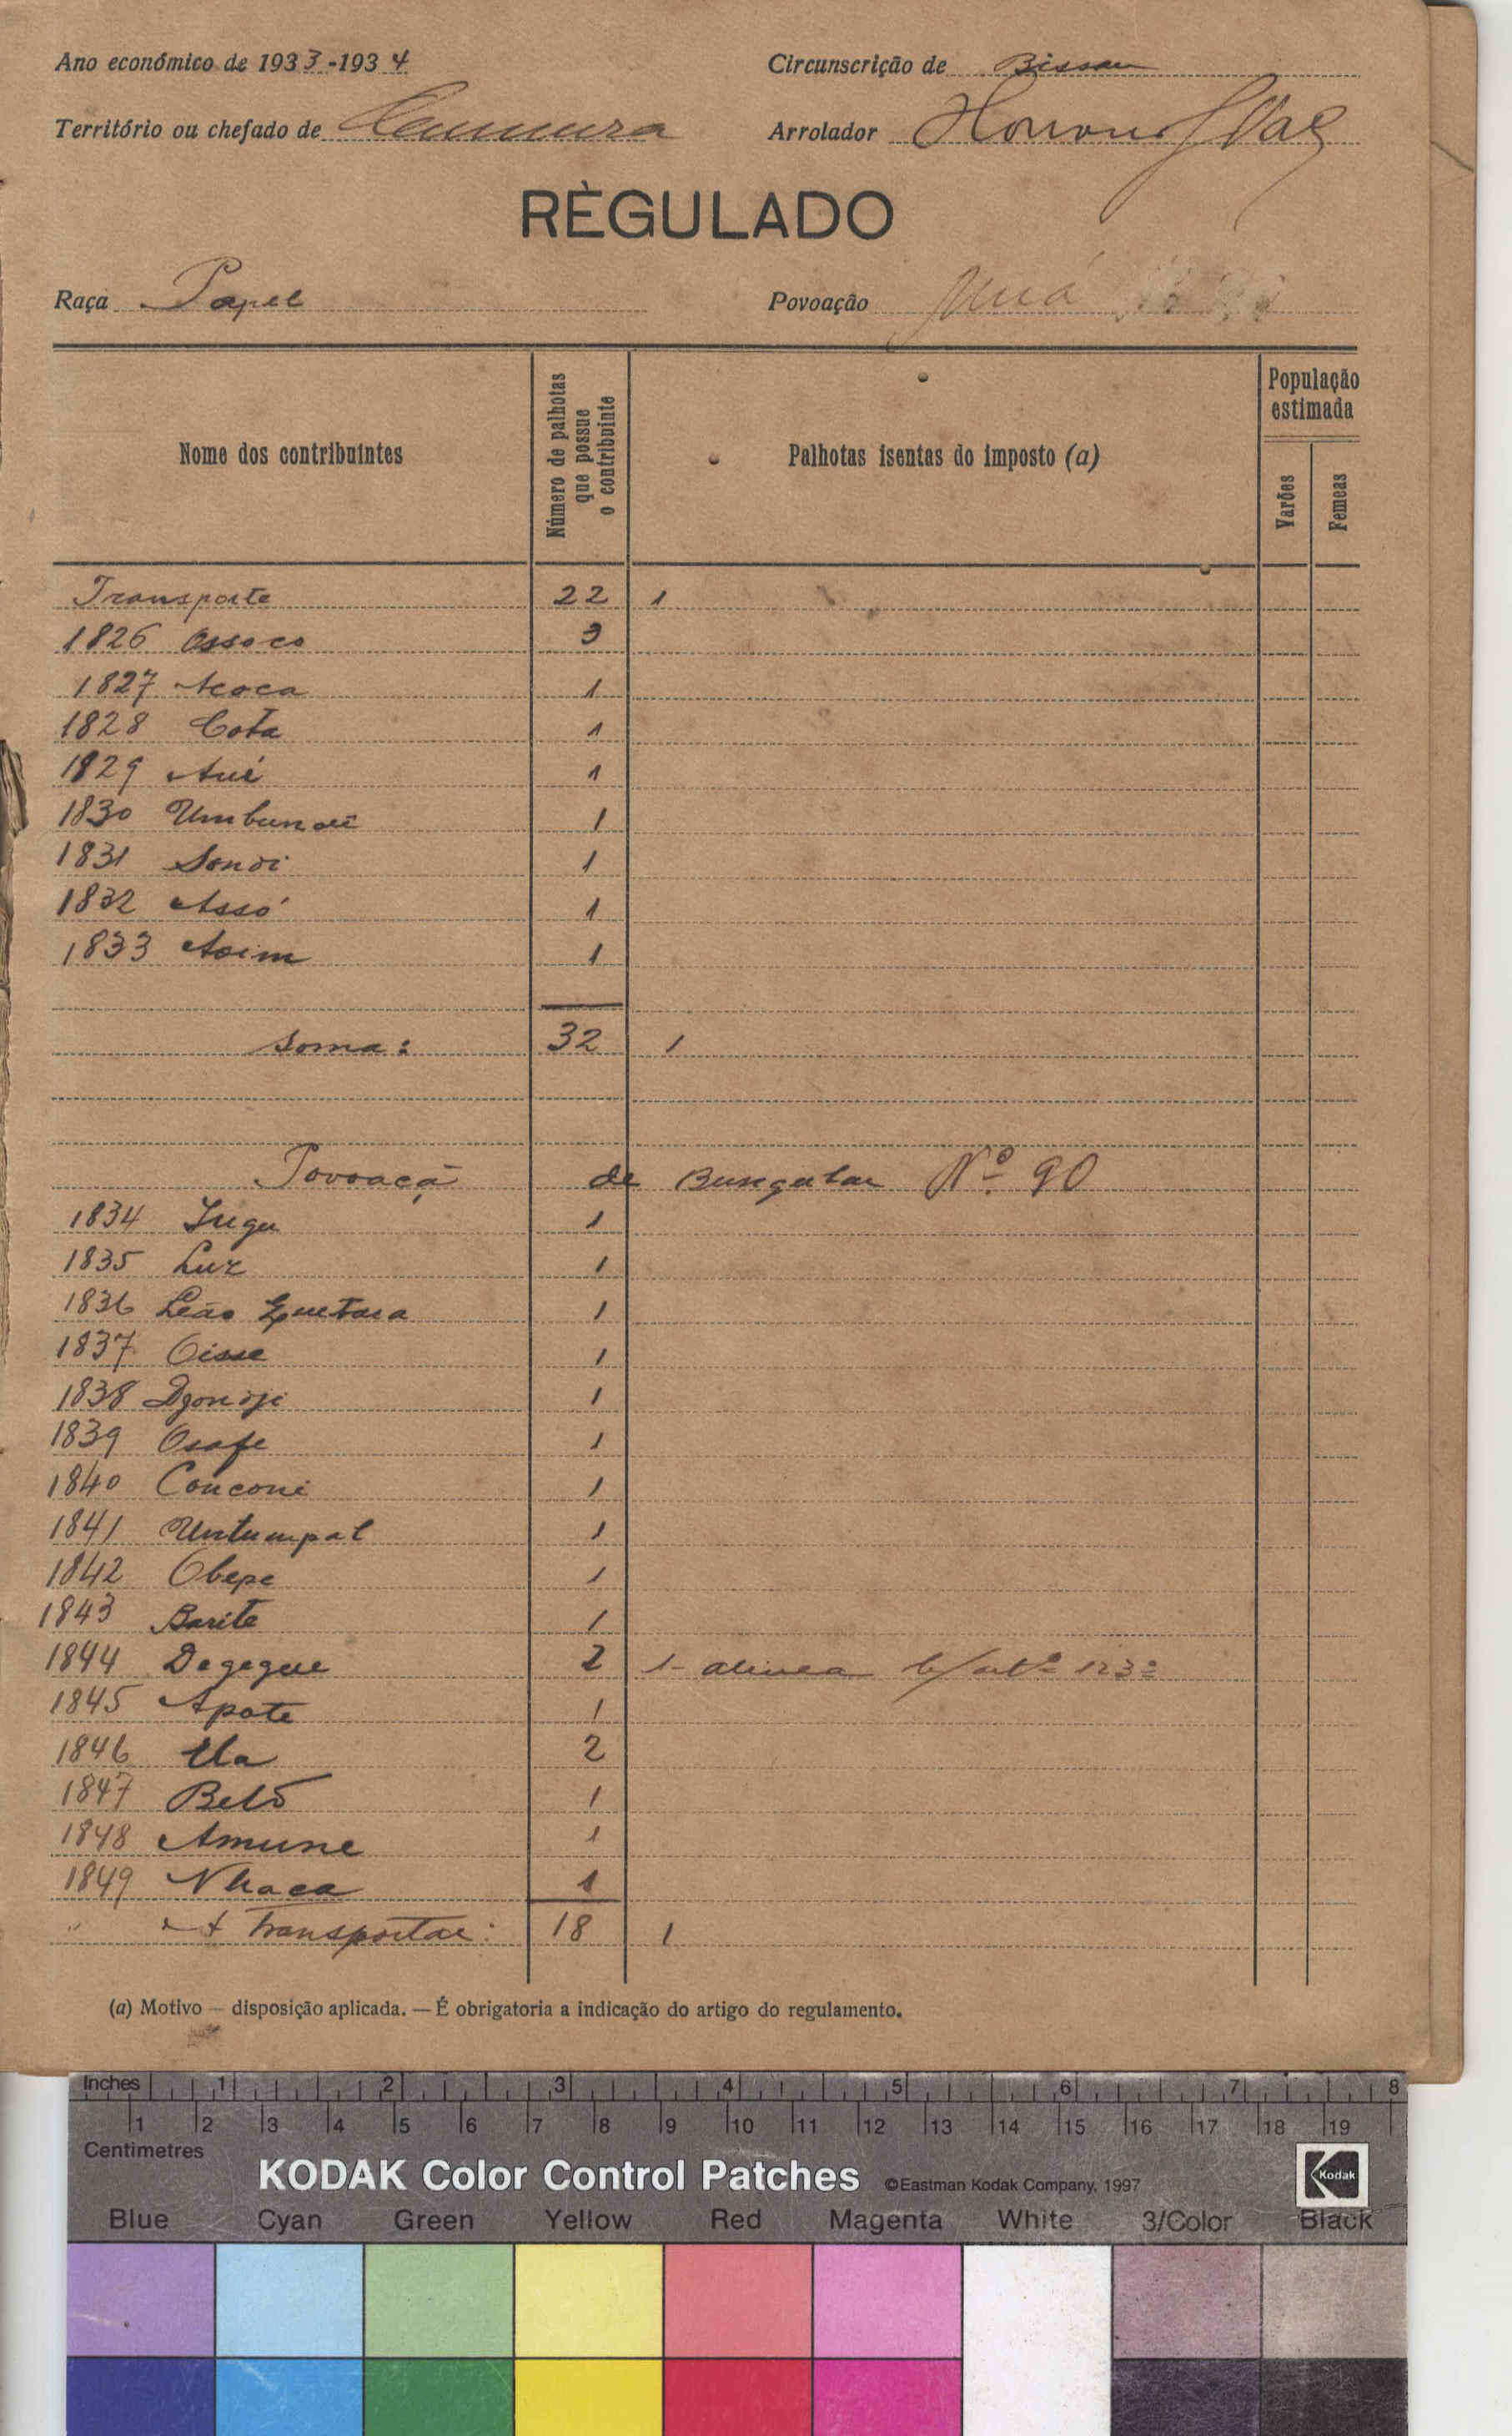 Ano económico de 1933-1934
Circunscrição de Bissau
Território ou chefado de
Arrolador
RÈGULADO
Raça Papel
Povoação
Nome dos contribuintes
Número de palhotas que possue o contribuinte
Palhotas isentas do imposto (a)
População estimada
Varões
Femeas
Transporte 22 1
1826 Ossoco 3
1827 Acoca 1
1828 Cota 1
1829 Aué 1
1830 1
1831 1
1832 Assó 1
1833 1
Soma: 32 1
Povoaçã de Bungular Nº 90
1834 1
1835 Luz 1
1836 Leão 1
1837 Oisse 1
1838 1
1839 Osafe 1
1840 Conconi 1
1841 Untumpal 1
1842 Obepe 1
1843 Barite 1
1844 Degegue 2 1- alinea b/ artº 123º
1845 Apote 1
1846 2
1847 Beló 1
1848 Amune 1
1849 Nhaca 1
A transportar: 18 1
(a) Motivo — disposição aplicada. — É obrigatoria a indicação do artigo do regulamento.
Inches 1 2 3 4 5 6 7 8
1 2 3 4 5 6 7 8 9 10 11 12 13 14 15 16 17 18 19
Centimetres
KODAK Color Control Patches ©Eastman Kodak Company, 1997 Kodak
Blue Cyan Green Yellow Red Magenta White 3/Color Black